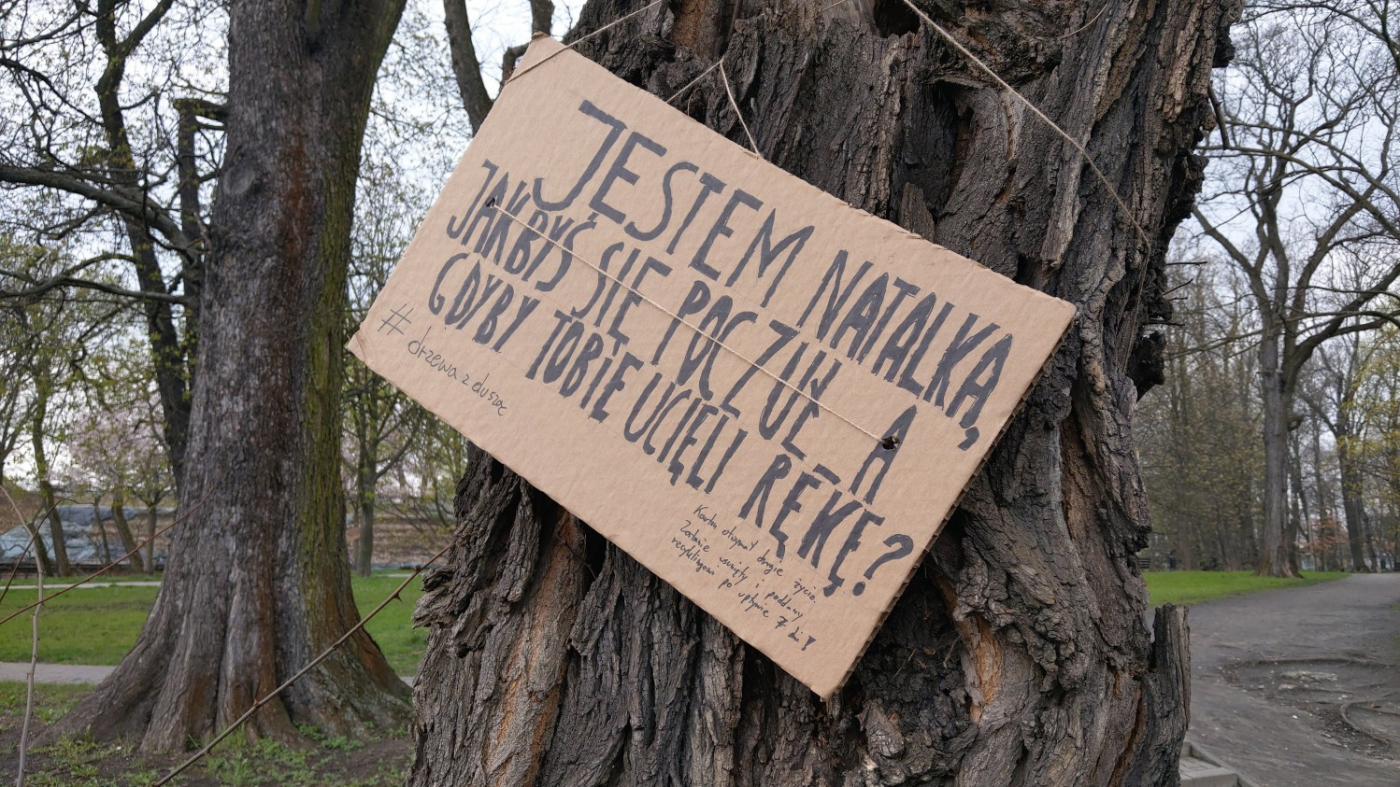 JESTEM NATALKĄ,
JAKBYŚ SIĘ POCZUŁ_A
GDYBY TOBIE UCIĘLI RĘKĘ?
# drzewa z duszą
Karton otrzymał drugie życie.
Zostanie usunięty i poddany
recyklingowi po upływie 7 dni